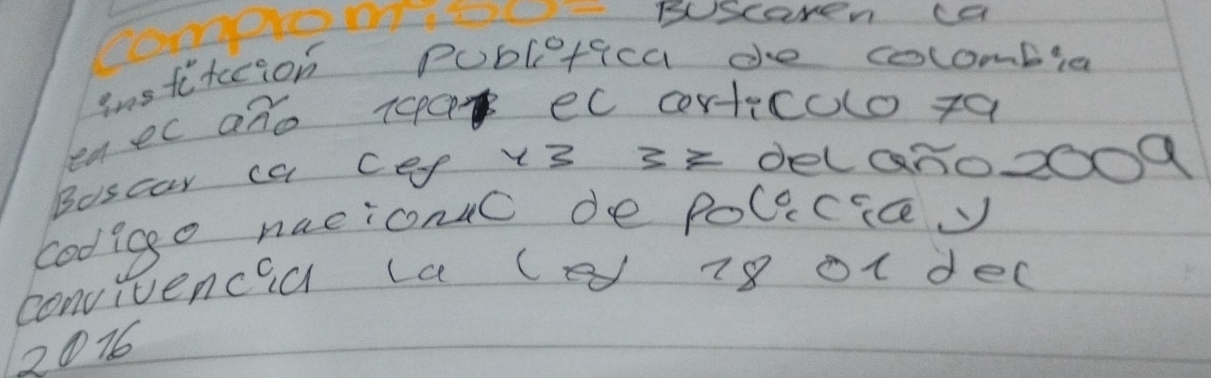 compromiso= Buscaren la
institccion Publifica de colombia
en el año 1991 el carticulo 79
Boscar la Ley 13 33 del año 2009
codigo nacional de Policia y
convivencia la Ley 18 01 del
2016